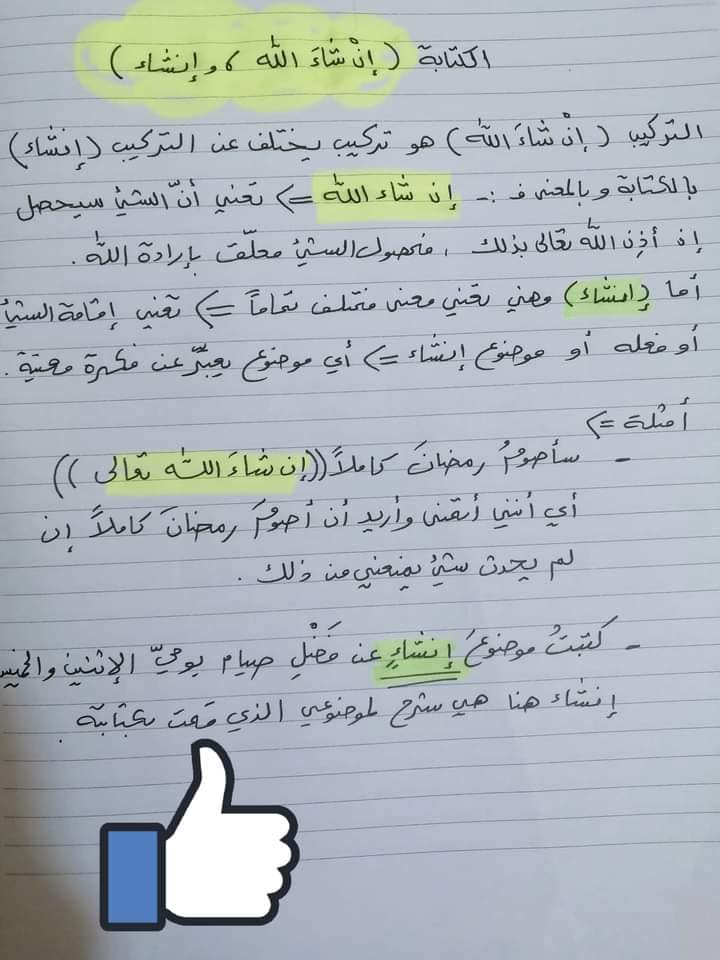 الكتابة ( إنْ شاءَ الله ، وإنشاء )
التركيب ( إنْ شاءَ الله ) هو تركيب يختلف عن التركيب (إنشاء)
بالكتابة وبالمعنى ف :- إن شاء الله => تعني أنّ الشيئ سيحصل
إن أذِن الله تعالى بذلك ، فحصول الشيئ معلّق بإرادة الله .
أما (إنشاء) وهني تعني معنى مختلف تماماً => تعني إقامة الشيئ
أو فعله أو موضوع إنشاء => أي موضوع يعبّر عن فكرة معيّنة .
أمثلة =>
- سأصومُ رمضانَ كاملاً ((إن شاءَ الله تعالى ))
أي أنني أتمنى وأريد أن أصومَ رمضانَ كاملاً إن
لم يحدث شيئ يمنعني من ذلك .
- كتبتُ موضوعَ إنشاءٍ عن فَضْلِ صيام يوميّ الإثنين والخميس
إنشاء هنا هي شرح لموضوعي الذي قمت بكتابته .